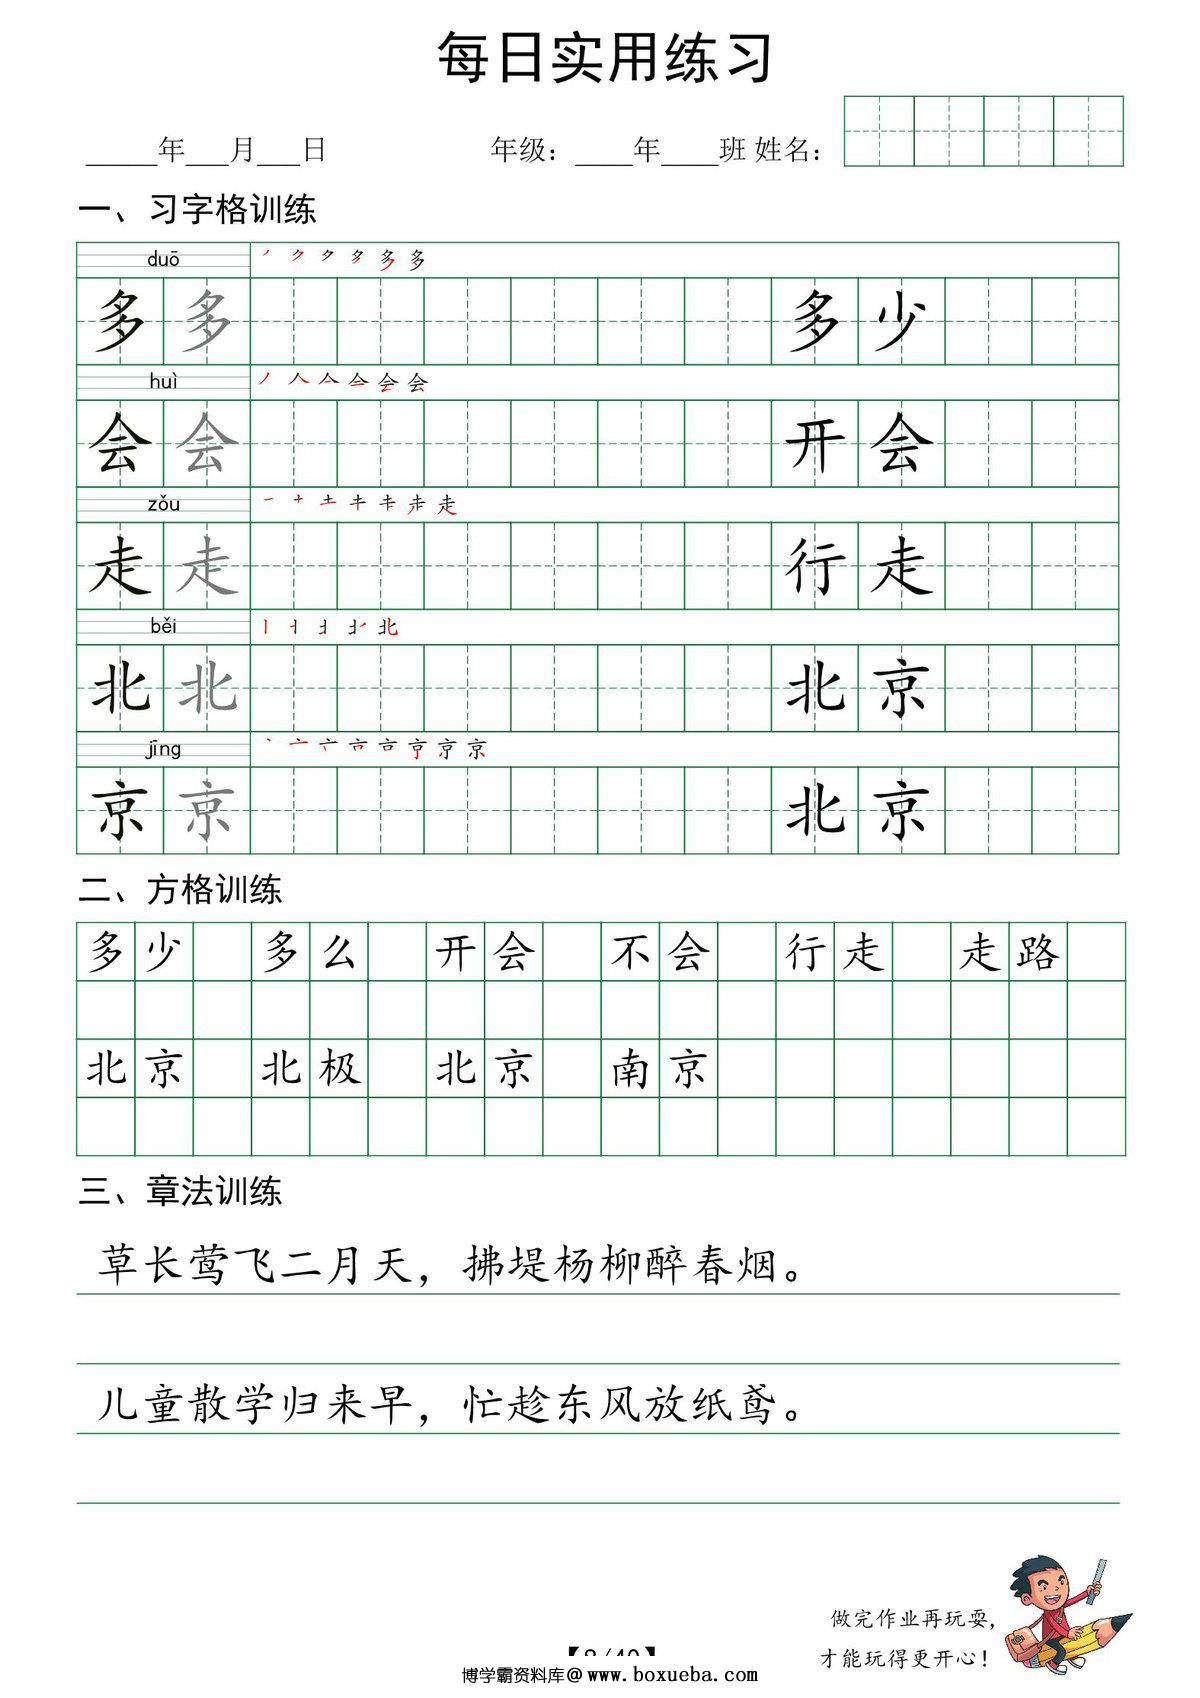 每日实用练习
_____年___月___日 年级：____年____班 姓名：
一、习字格训练
duō
多 多 多 少
huì
会 会 开 会
zǒu
走 走 行 走
běi
北 北 北 京
jīng
京 京 北 京
二、方格训练
多少 多么 开会 不会 行走 走路
北京 北极 北京 南京
三、章法训练
草长莺飞二月天，拂堤杨柳醉春烟。
儿童散学归来早，忙趁东风放纸鸢。
做完作业再玩耍，
才能玩得更开心！
博学霸资料库@www.boxueba.com